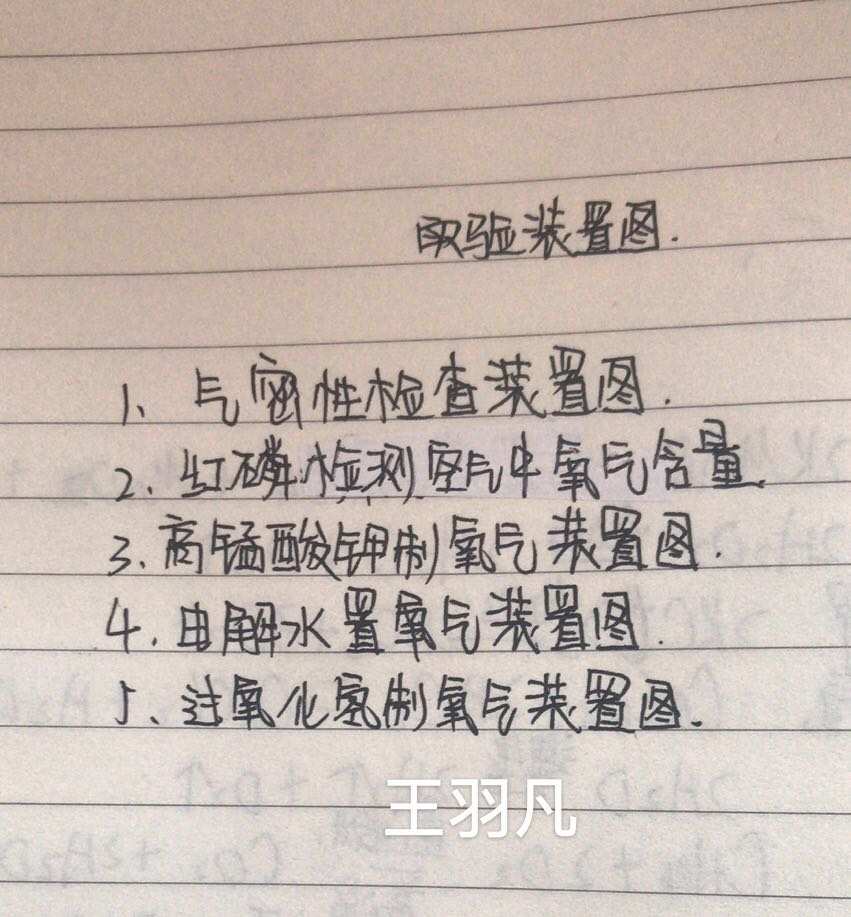 取验装置图.
1、气密性检查装置图.
2、红磷检测空气中氧气含量.
3、高锰酸钾制氧气装置图.
4、由解水置氧气装置图.
5、过氧化氢制氧气装置图.
王羽凡